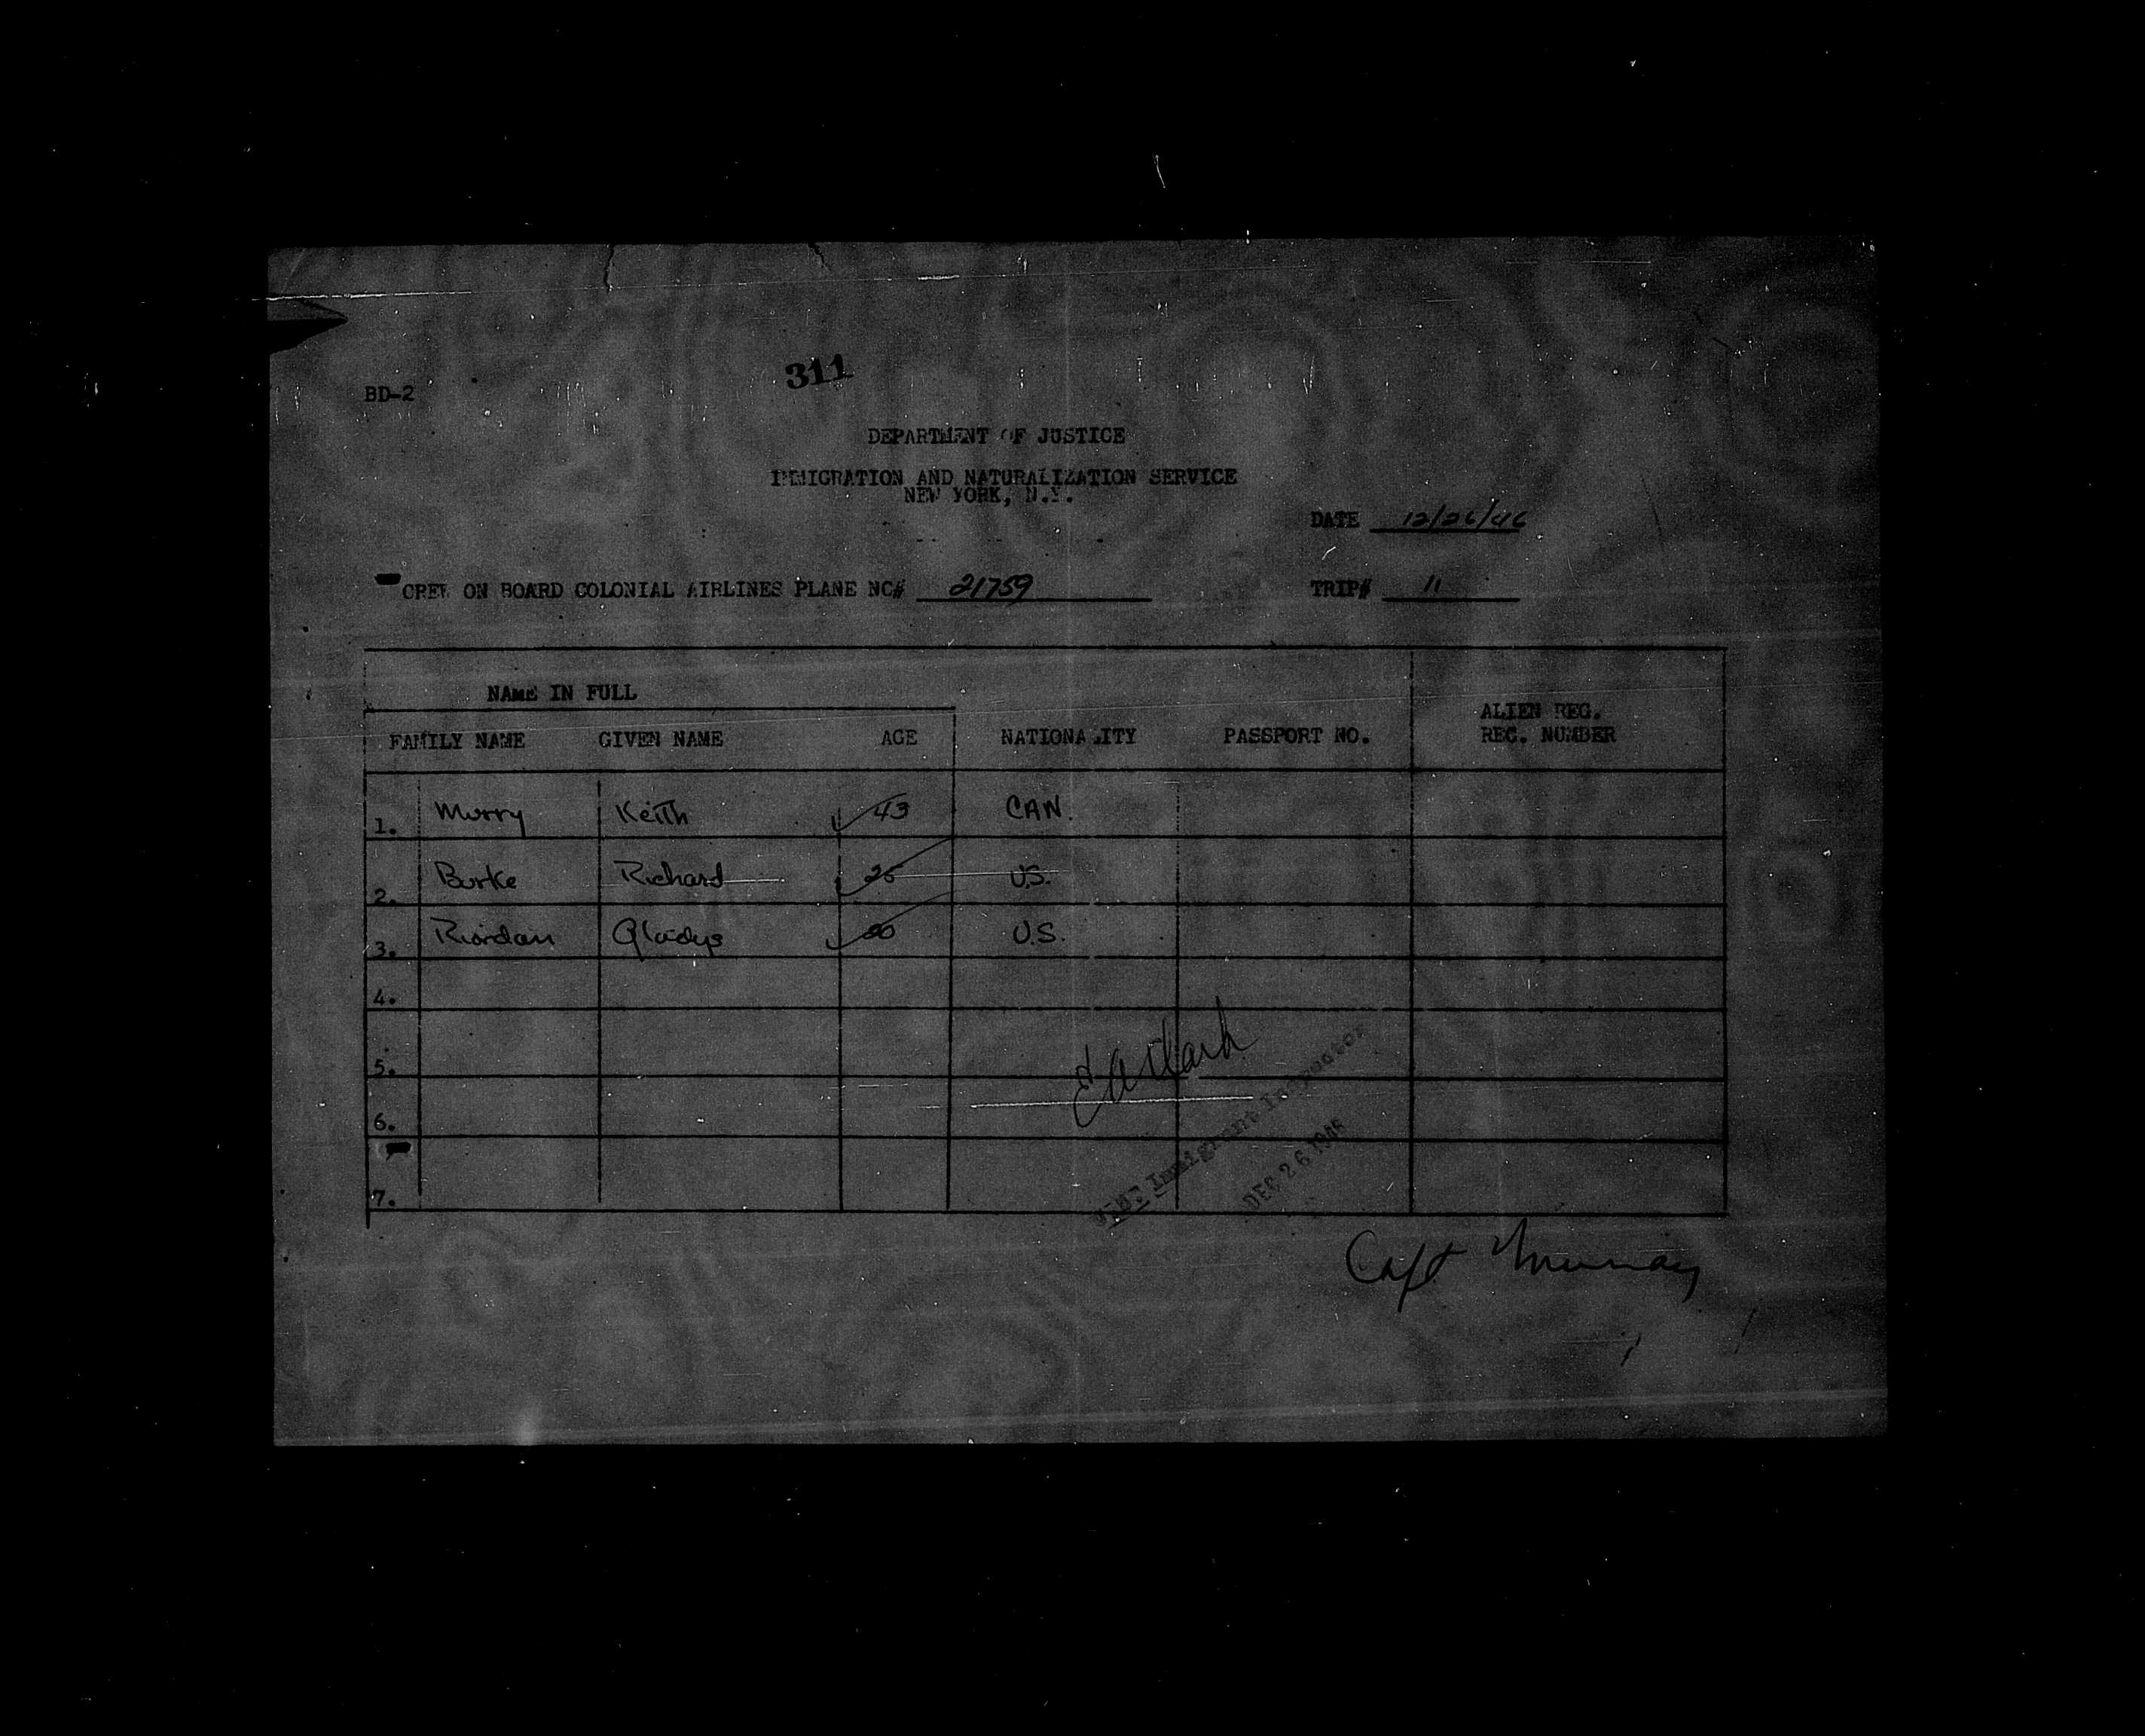 311
BD-2
DEPARTMENT OF JUSTICE
IMMIGRATION AND NATURALIZATION SERVICE
NEW YORK, N.Y.
DATE 12/26/46
CREW ON BOARD COLONIAL AIRLINES PLANE NC# 21759 TRIP# 11
NAME IN FULL
FAMILY NAME GIVEN NAME AGE NATIONALITY PASSPORT NO. ALIEN REG. REC. NUMBER
1. Murry Keith 43 CAN.
2. Burke Richard 25 U.S.
3. Riordan Gladys U.S.
4.
5.
6.
7.
EA Clark
Immigrant Inspector
DEC 26 1946
Capt Murray